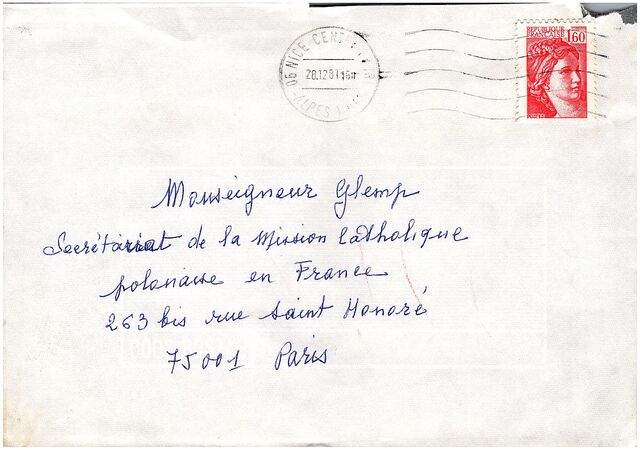 REPUBLIQUE
FRANCAISE 1,60
06 NICE-CENTRE
28.12.81 16H
ALPES
Monseigneur Glemp
Secrétariat de la Mission Catholique
polonaise en France
263 bis rue Saint Honoré
75001 Paris